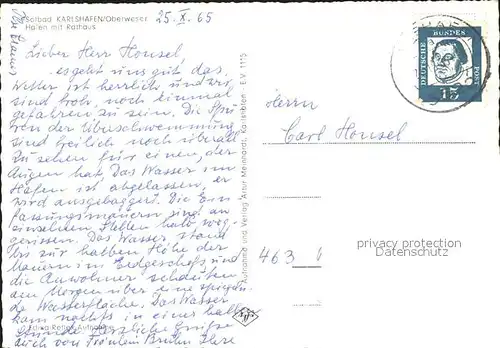 Solbad KARLSHAFEN/Oberweser
Hafen mit Rathaus
25. X. 65
Lieber Herr Honsel
es geht uns gut das
Wetter ist herrlich und wir
sind froh, noch einmal
gefahren zu sein. Die Spu-
ren der Überschwemmung
sind freilich noch überall
zu sehen für einen, der
Augen hat. Das Wasser im
Hafen ist abgelassen, er
wird ausgebaggert. Die Ein-
fassungsmauern sind an
einzelnen Stellen halb weg-
gerissen. Das Wasser stand
bis zur halben Höhe der
Mauern im Erdgeschoß und
die Anwohner schauten
am Morgen über eine spiegeln-
de Wasserfläche. Das Wasser
kam nachts in einer halben
Stunde. Herzliche Grüße
auch von Fräulein Ihre
Echte Retina-Aufnahme
Aufnahme und Verlag Artur Meinhardt, Karlshafen · E.V. 1115
Agfa
DEUTSCHE BUNDESPOST
15
Herrn
Carl Honsel
463
privacy protection
Datenschutz